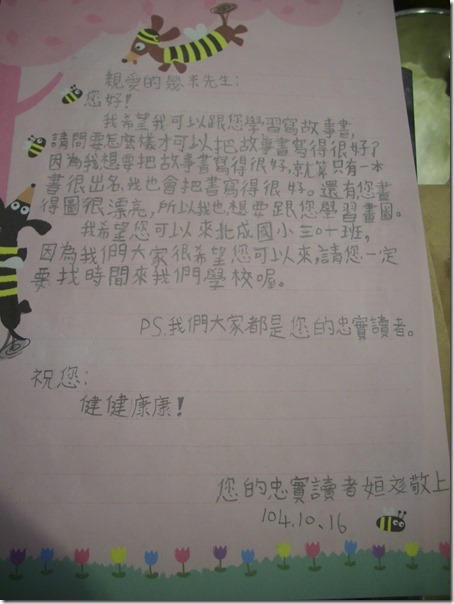 親愛的幾米先生:
您好!
我希望我可以跟您學習寫故事書,
請問要怎麼樣才可以把故事書寫得很好?
因為我想要把故事書寫得很好,就算只有一本
書很出名,我也會把書寫得很好。還有,您畫
得圖很漂亮,所以我也想要跟您學習畫圖。
我希望您可以來北成國小三0一班,
因為我們大家很希望您可以來,請您一定
要找時間來我們學校喔。
PS.我們大家都是您的忠實讀者。
祝您:
健健康康!
您的忠實讀者姮玟敬上
104.10、16